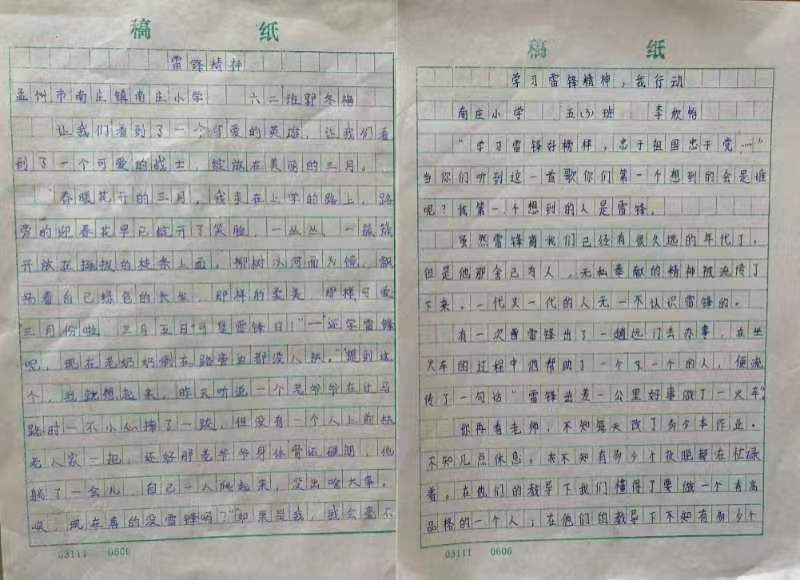 稿 纸
雷锋精神
孟州市南庄镇南庄小学 六二班 郭冬梅
让我们看到了一个可爱的英雄，让我们看
到了一个可爱的战士，绽放在美丽的三月。
"春暖花开的三月，我走在上学的路上，路
旁的迎春花早已绽开了笑脸，一丛丛，一簇簇
开放在摇拔的枝条上面，柳树以河面为镜，飘
扬着自己绿色的长丝，那样的柔美，那样可爱
三月份啦，三月五日可是雷锋日！"一还学雷锋
呢，现在老奶奶倒在路旁也都没人扶。"提到这
个，我就想起来，昨天听说一个老爷爷在过马
路时一不小心摔了一跤，但没有一个人上前扶
老人家一把，还好那老爷爷身体骨还硬朗，他
躺了一会儿，自己一人爬起来，没出啥大事。
唉，现在真的没雷锋吗？"如果是我，我会毫不
03111 0606
稿 纸
学习雷锋精神，我行动
南庄小学 五(3)班 李欣怡
"学习雷锋好榜样，忠于祖国忠于党…"
当你们听到这一首歌你们第一个想到的会是谁
呢？我第一个想到的人是雷锋。
虽然雷锋离我们已经有很久远的年代了，
但是他那舍己为人、无私奉献的精神被流传了
下来。一代又一代的人无一不认识雷锋的。
有一次雷锋出了一趟远门去办事，在坐
火车的过程中他帮助了一个又一个的人，便流
传了一句话"雷锋出差一公里好事做了一火车"
你再看老师，不知每天改了多少本作业。
不知几点休息。夜不知有多少个夜晚都在忙碌
着。在他们的教导下我们懂得了要做一个有高
品格的一个人；在他们的教导下不知有多少个
03111 0606